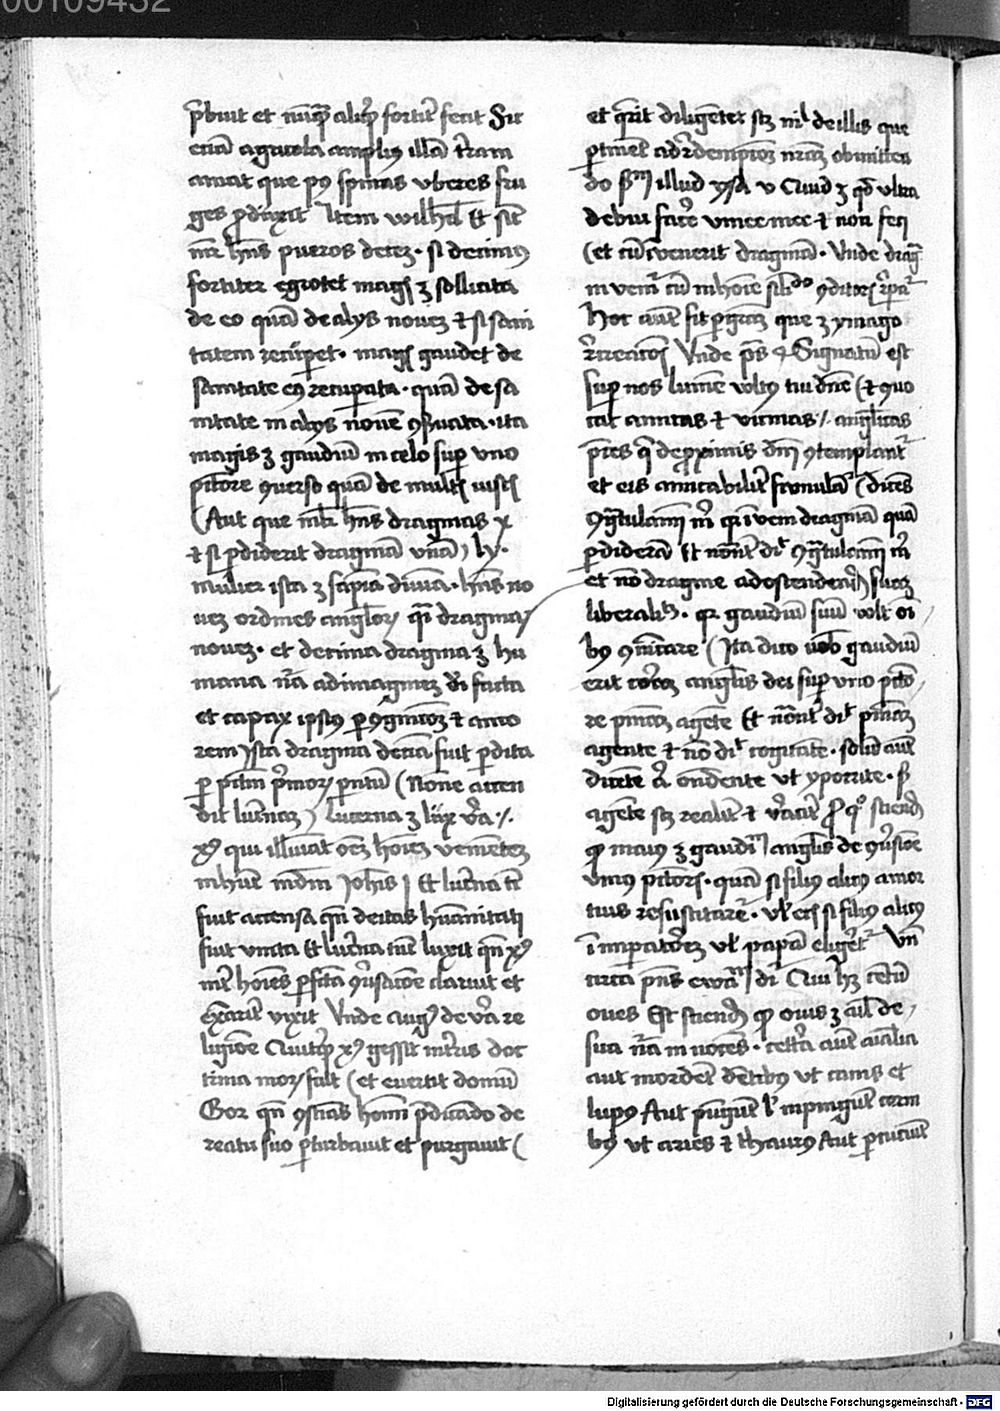 00109432
p̄buit et nūq̄ aliq̇d fortit̄ fecit Sic
etiā agricola amplius illā t̄ram
amat que p9 spinas vberes fru
ges ꝓduxit Item wilhel Et sic̄
mr̄ hn̄s pueros decez · si decimus
fortiter egrotet magis ꝫ sollicita
de eo quā de alijs nouez ⁊ si sani
tatem recuperet · magis gaudet de
sanitate eius recuperata · quā de sa
nitate in alijs nouē ꝯseruata · ita
magis ꝫ gaudiū in celo sup̄ vno
pctōre ꝯuerso quā de multis iustis
(Aut que mlr̄ hn̄s dragmas x
⁊ si ꝑdiderit dragmā vnā) ly ·
mulier ista ꝫ sapīa diuīa · hn̄s no
uez ordines anglorꝝ q̄i dragmas
nouez · et decima dragma ꝫ hu
mana nā ad imaginez dei facta
et capax ipsius ꝑ ꝯgnitōez ⁊ amo
rem Ista dragma decīa fuit ꝑdita
ꝑ pctm̄ p̄morꝝ parentū (Nōne accen
dit lucernaz) Lucerna ꝫ lux vera ·/.
xp̄s qui illuīat oēz hoīez veniētez
in hunc mūdm Johīs j Et lucerna tc̄
fuit accensa qn̄ deitas humanitati
fuit vnita Et lucerna tūc luxit qn̄ xp̄s
inter hoīes ꝑfecta ꝯuersacōne claruit et
vixit Vnde Aug9 de vera re
ligione Quicquid xp̄s gessit in terris doc
trina morꝝ fuit (et euertit domū)
Gor qn̄ ꝯscias homī p̄dicādo de
reatu suo ꝑturbauit et purgauit (
et querit diligēter scz nil de illis que
ꝑtinēt ad redemptōez nr̄az obmitten
do scdm illud ysa v Quid ꝫ qd vltra
debui facē vinee mee ⁊ non feci
(et cū īuenerit dragmā · Vnde drag
inuenit̄ cū in hoīe silitudo ꝯditoris repat̄
Hoc autē fit ꝑ graz que ꝫ ymago
recreatōis Vnde ps̄ 4 Signatū est
sup̄ nos lumē voltus tui dn̄e (⁊ ꝯuo
cat amicas ⁊ vicinas ·/. anglicas
ptātes q̄ de ꝓximis dm̄ ꝯtemplant̄
et eis amicabilit̄ (dicēs
ꝯgtulamī m̄ qr̄ īueni dragmā quā
ꝑdiderā Et nōn dic̄ ꝯgtulamī m̄
et nō dragme ad ostendendū suaz
liberalitatē · qr̄ gaudiū suū volt oī
bus ꝯmunicare (Ita dico uob gaudiū
erit corā anglis dei sup̄ vno pctō
re pnīaz agēte Et nōn dic̄ pnīaz
agente ⁊ nō dic̄ cogitāte · solū aūt
dicēte aut ondente vt ypocrite · s;
agēte scz realit̄ ⁊ veracit̄ Pro quo sciendū
q̄ maius ꝫ gaudiū anglis de ꝯuersiōe
vnius pctoris · quā si filius alicus mor
tuus resuscitaret · vl' eciā si filius alicus
ī impatorez vl' papā eliget̄ Vn̄
circa p̄ns ewāgm dic̄ Qui h3 centū
oues Est sciendū q̄ ouis ꝫ aīal de
sua nā innocēs · cetera autē aīalia
aut mordent dentibus vt canis et
lupus Aut pungunt l' impingunt corni
bus vt aries ⁊ thaurus Aut ꝑcuciunt
Digitalisierung gefördert durch die Deutsche Forschungsgemeinschaft - DFG